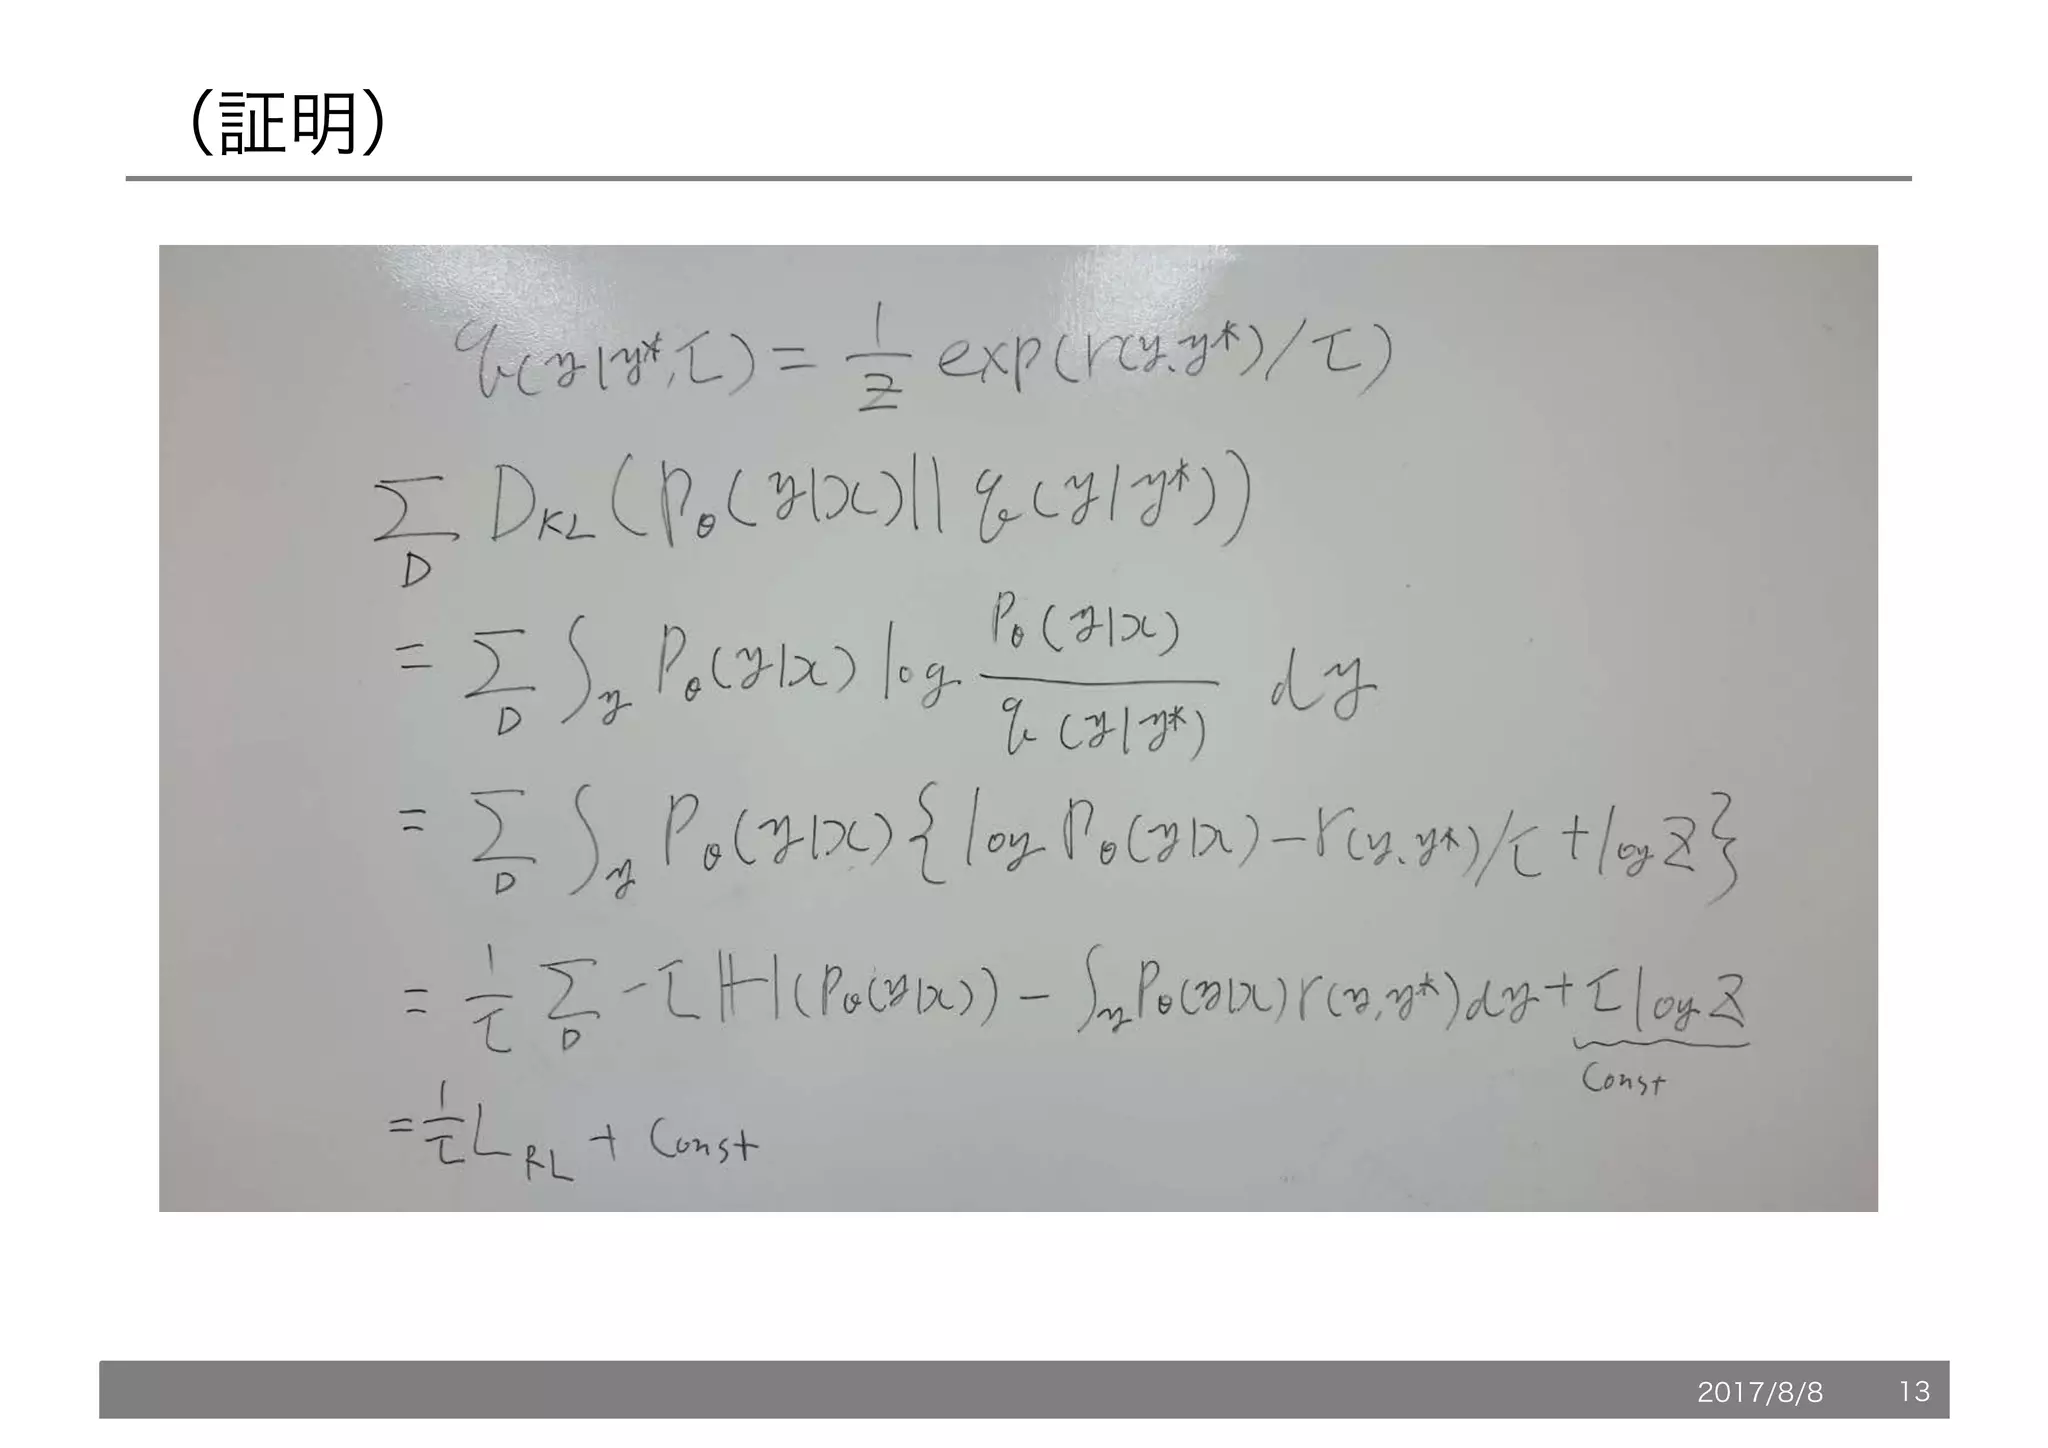 （証明）
q(y|y*,τ) = 1/Z exp(r(y,y*)/τ)
Σ_D D_KL(P_θ(y|x)||q(y|y*))
= Σ_D ∫_y P_θ(y|x) log P_θ(y|x) / q(y|y*) dy
= Σ_D ∫_y P_θ(y|x){log P_θ(y|x) - r(y,y*)/τ + log Z}
= 1/τ Σ_D -τ ℍ(P_θ(y|x)) - ∫_y P_θ(y|x) r(y,y*)dy + τ log Z
Const
= 1/τ L_RL + Const
2017/8/8 13